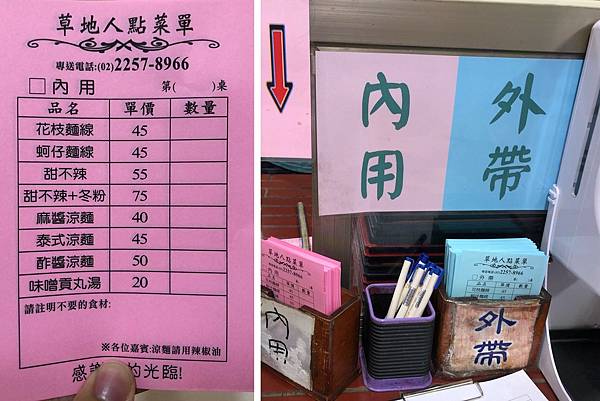 草地人點菜單
專送電話:(02)2257-8966
內用 第( )桌
品名 單價 數量
花枝麵線 45
蚵仔麵線 45
甜不辣 55
甜不辣+冬粉 75
麻醬涼麵 40
泰式涼麵 45
酢醬涼麵 50
味噌貢丸湯 20
請註明不要的食材:
※各位嘉賓:涼麵請用辣椒油
的光臨!
內用
外帶
草地人點菜單
2257-8966
草地人點菜單
2257-8966
外帶
內用
外帶